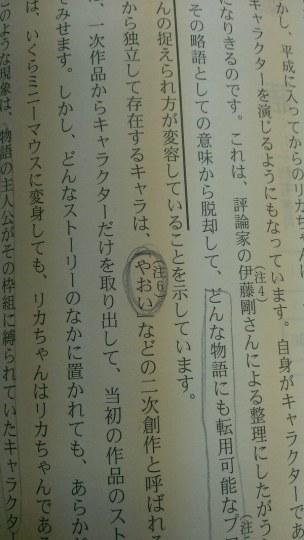 かし、平成に入ってからのリカちゃん
キャラクターを演じるようにもなっています。自身がキャラクターであ
になりきるのです。これは、評論家の伊藤剛さんによる整理にしたがう
(注4)
その略語としての意味から脱却して、どんな物語にも転用可能なプ
(注
んの捉えられ方が変容していることを示しています。
から独立して存在するキャラは、「やおい」などの二次創作と呼ばれる
(注6)
、一次作品からキャラクターだけを取り出して、当初の作品のスト
てみせます。しかし、どんなストーリーのなかに置かれても、あらか
は、いくらミニーマウスに変身しても、リカちゃんはリカちゃんである
このような現象は、物語の主人公がその枠組に縛られていたキャラクタ